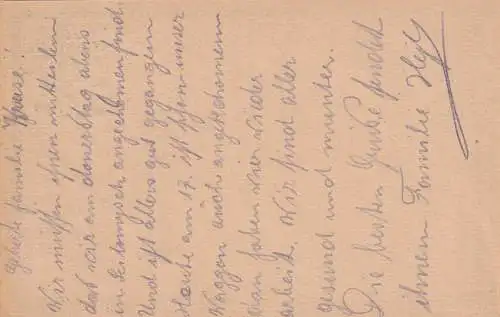 geert familie Krause!
Wir müssen ihnen mitteilen
das wir am donerstag abens
in angekomen sind.
Und ist alles gut gegangen
Heute am 17. ist schon unser
Waggon auch angekommen
dan haben wir wieder
arbeit. Wir sind aller
gesund und munter.
Die besten Grüße sendet
ihnen Familie